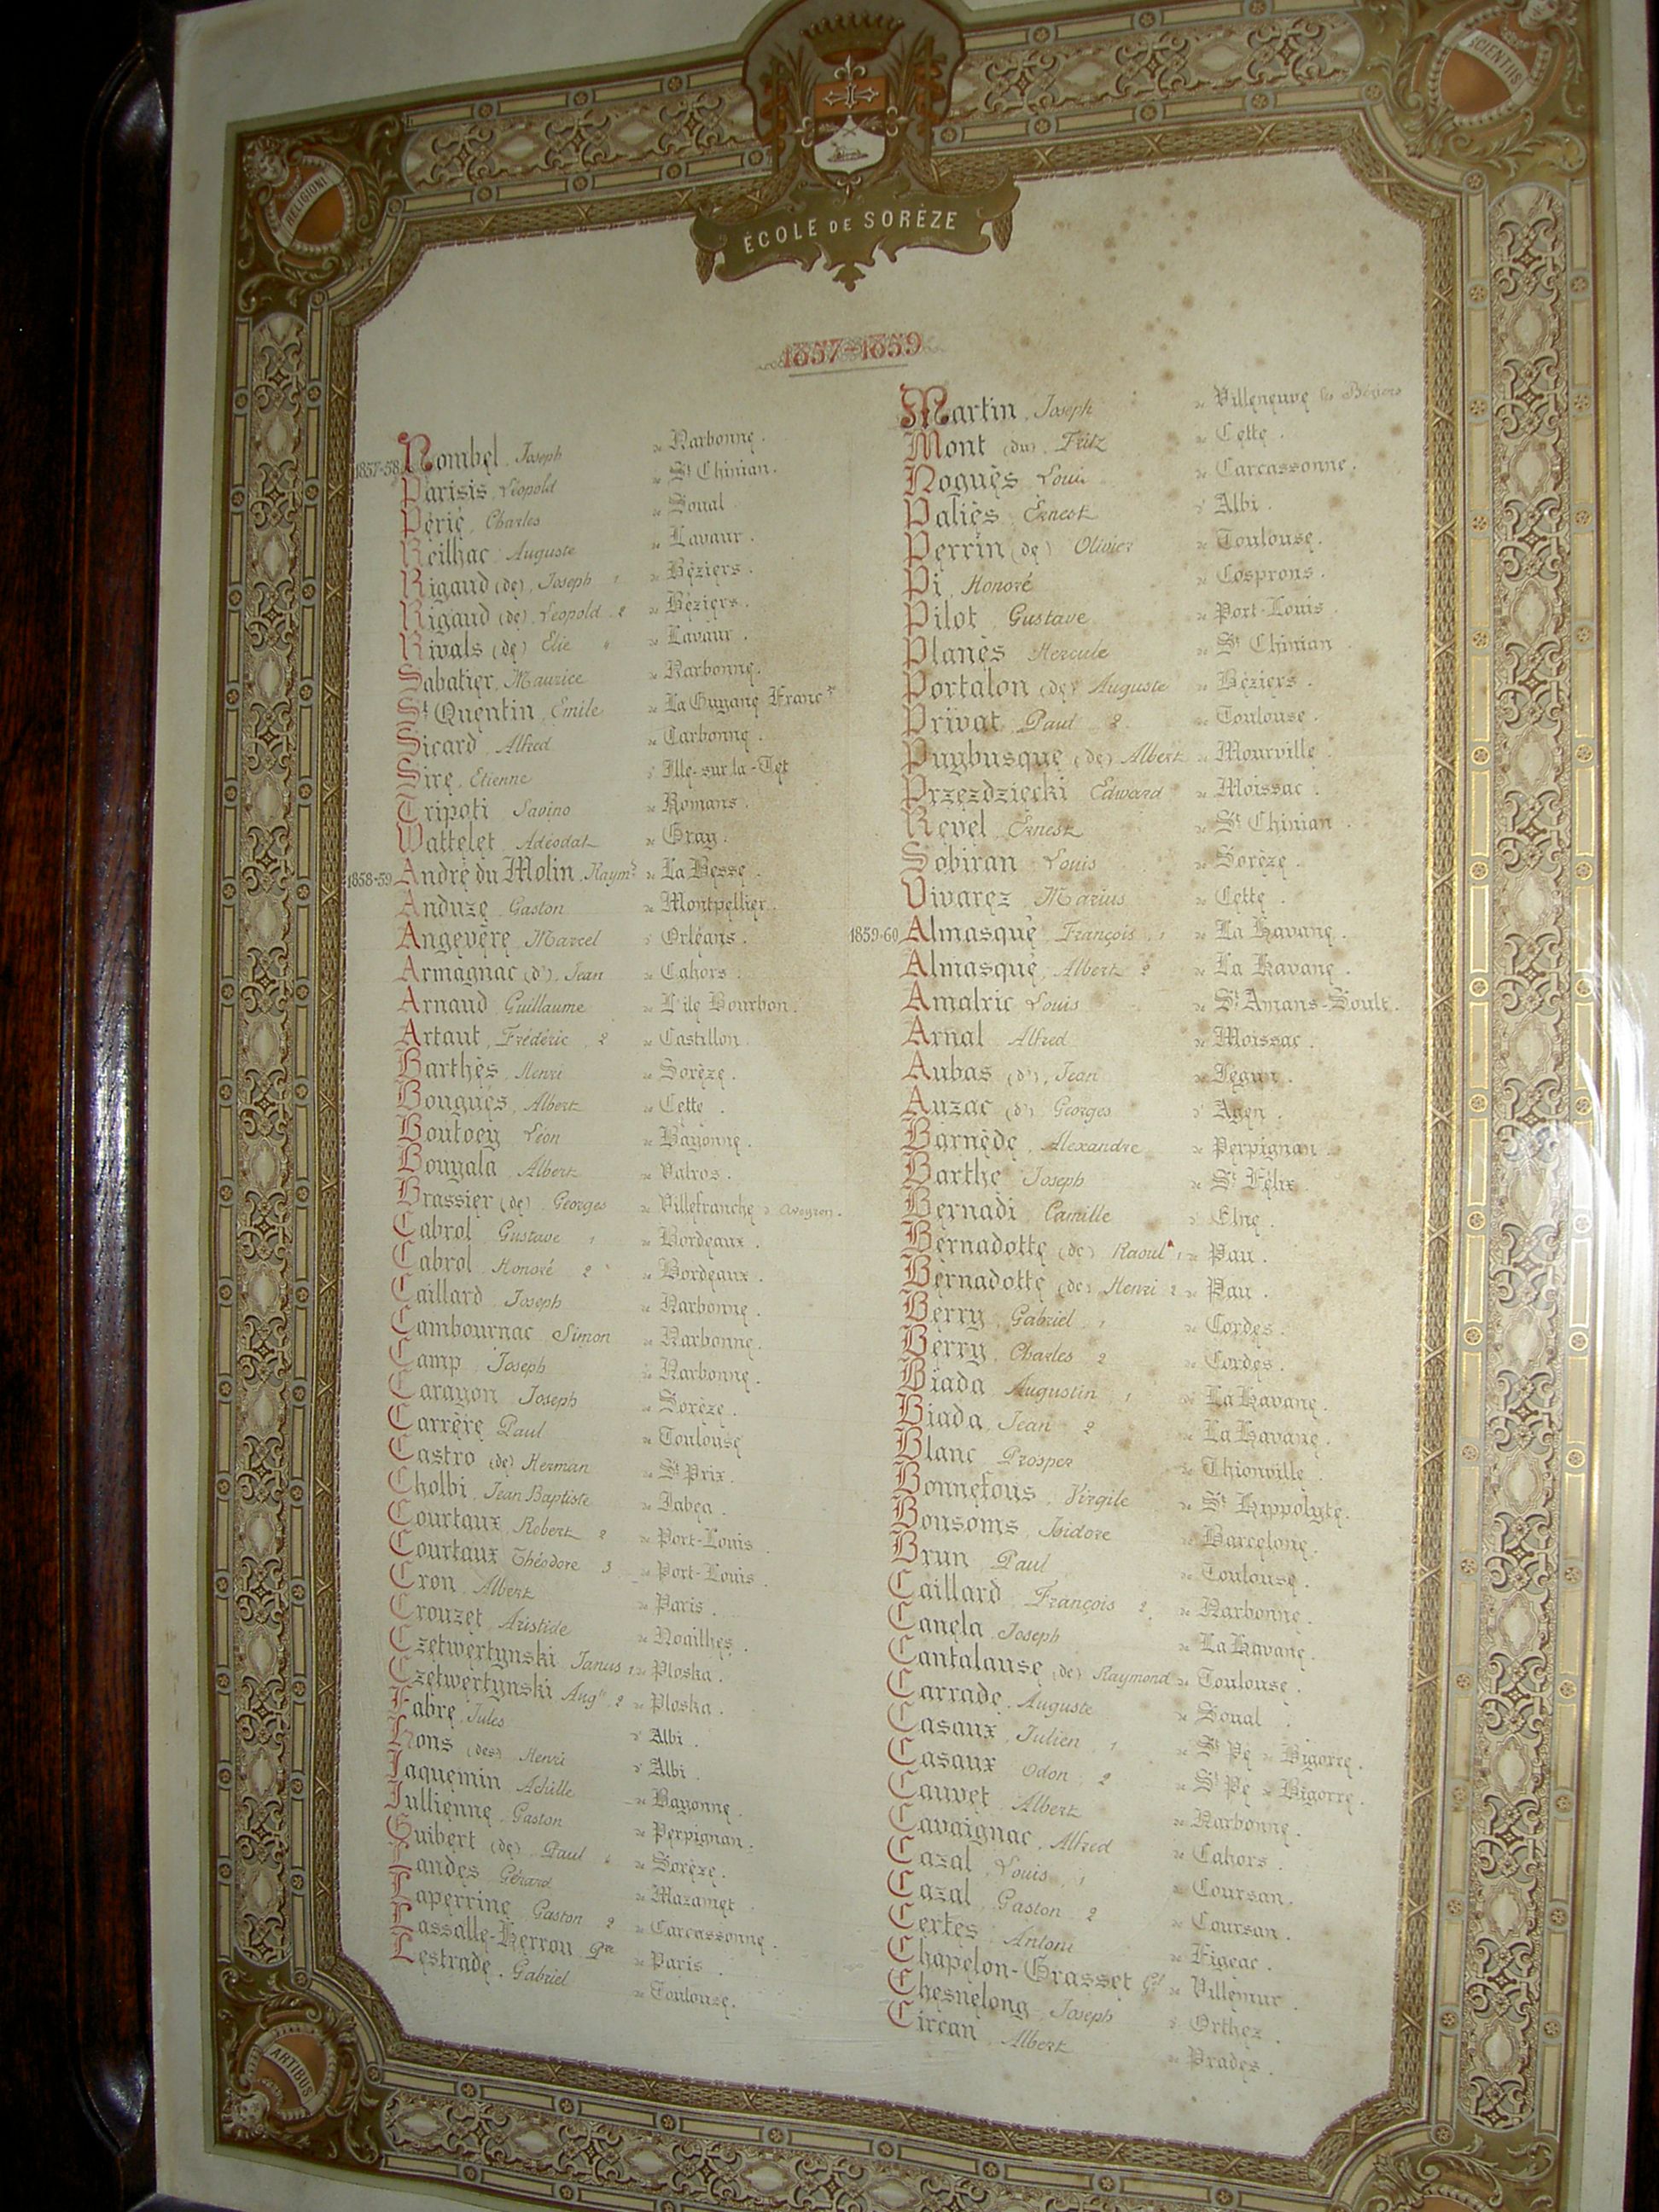 RELIGIONI
SCIENTIIS
ÉCOLE DE SORÈZE
1857-1859
1857-58 Nombel, Joseph de Narbonne.
Parisis, Léopold de St Chinian.
Périé, Charles de Soual
Reilhac, Auguste de Lavaur.
Rigaud (de), Joseph 1 de Béziers.
Rigaud (de), Léopold 2 de Béziers.
Rivals (de) Elie de Lavaur.
Sabatier, Maurice de Narbonne.
St Quentin, Emile de La Guyane Francse
Sicard, Alfred de Narbonne.
Sire, Etienne d' Ille-sur-la-Têt
Tripoti Savino de Romans.
Wattelet, Adéodat de Gray.
1858-59 André du Molin, Raymd de La Besse.
Anduze, Gaston de Montpellier.
Angevère, Marcel d' Orléans.
Armagnac (d'), Jean de Cahors.
Arnaud Guillaume de L'ile Bourbon.
Artaut, Frédéric, 2 de Castillon.
Barthès, Henri de Sorèze.
Bougues, Albert de Cette.
Boutoey Léon de Bayonne.
Bouyala, Albert de Valros.
Brassier (de) Georges de Villefranche d'Aveyron.
Cabrol Gustave 1 de Bordeaux.
Cabrol Honoré 2 de Bordeaux.
Caillard Joseph de Narbonne.
Cambournac Simon de Narbonne.
Camp Joseph de Narbonne.
Carayon Joseph de Sorèze.
Carrère Paul de Toulouse
Castro (de) Herman de St Prix.
Cholbi, Jean Baptiste de Jabea.
Courtaux Robert 2 de Port-Louis.
Courtaux Théodore 3 de Port-Louis.
Cron, Albert de Paris.
Crouzet, Aristide de Noailhes.
Czetwertynski Janus 1 de Ploska.
Czetwertynski Augte 2 de Ploska.
Fabre, Jules d' Albi.
Hons (des) Henri d' Albi.
Jaquemin Achille de Bayonne.
Jullienne, Gaston de Perpignan.
Guibert (de), Paul de Sorèze.
Landes Gérard de Mazamet.
Laperrine Gaston 2 de Carcassonne.
Lassalle-Herron de Paris.
Lestrade, Gabriel de Toulouse.
Martin, Joseph de Villeneuve les Béziers
Mont (du) Fritz de Cette.
Noguès Louis de Carcassonne.
Paliès Ernest d' Albi.
Perrin (de) Olivier de Toulouse.
Pi, Honoré de Cosprons.
Pilot, Gustave de Port-Louis.
Planès Hercule de St Chinian
Portalon (de) Auguste de Béziers.
Privat Paul 2. de Toulouse.
Puybusque (de) Albert de Mourville.
Przezdziecki Edward de Moissac.
Revel Ernest de St Chinian.
Sobiran Louis de Sorèze.
Vivarez Marius de Cette.
1859-60 Almasqué, François, 1 de La Havane.
Almasqué, Albert 2 de La Havane.
Amalric Louis de St Amans-Soult.
Arnal Alfred de Moissac.
Aubas (d'), Jean de Jégun.
Auzac (d') Georges d' Agen.
Barnède, Alexandre de Perpignan.
Barthe Joseph de St Félix.
Bernadi Camille d' Elne.
Bernadotte (de) Raoul 1 de Pau.
Bernadotte (de) Henri 2 de Pau.
Berry Gabriel 1 de Cordes.
Berry, Charles 2 de Cordes.
Biada Augustin 1 de La Havane.
Biada, Jean 2 de La Havane.
Blanc Prosper de Thionville.
Bonnefous, Virgile de St Hippolyte.
Bousoms Isidore de Barcelone.
Brun Paul de Toulouse.
Caillard François 2 de Narbonne.
Canela Joseph de La Havane.
Cantalause (de) Raymond de Toulouse.
Carrade, Auguste de Soual.
Casaux, Julien 1 de St Pé de Bigorre.
Casaux Odon 2 de St Pé de Bigorre.
Cauvet Albert de Narbonne.
Cavaignac, Alfred de Cahors.
Cazal Louis 1 de Coursan.
Cazal Gaston 2 de Coursan.
Certes Antoni de Figeac.
Chapelon-Grasset de Villemur.
Chesnelong Joseph d' Orthez.
Circan, Albert de Prades.
ARTIBUS